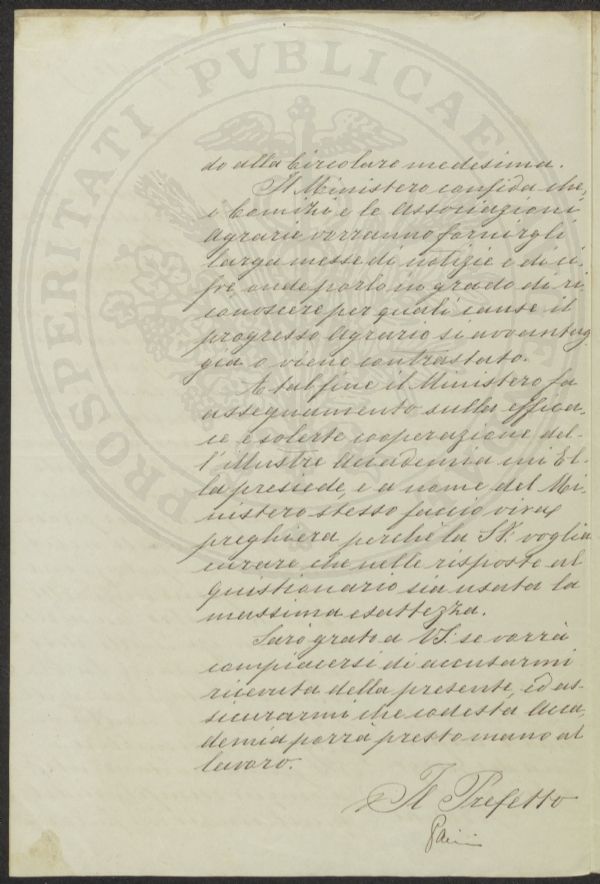 PROSPERITATI PVBLICAE
do alla Circolare medesima.
Il Ministero confida che,
i Comizi e le Associazioni
Agrarie vorranno fornirgli
larga messe di notizie e di ci,
fre onde porlo in grado di ri,
conoscere per quali cause il
progresso Agrario si avvantag
gia o viene contrastato.
A tal fine il Ministero fa
assegnamento sulla effica,
ce e solerte cooperazione del-
l'illustre Accademia cui El-
la presiede, e a nome del Mi-
nistero stesso faccio viva
preghiera perché la S.V. voglia
curare che nelle risposte al
quistionario sia usata la
massima esattezza.
Sarò grato a V.S. se vorrà
compiacersi di accusarmi
ricevuta della presente, ed as-
sicurarmi che codesta Acca,
demia porrà presto mano al
lavoro.
Il Prefetto